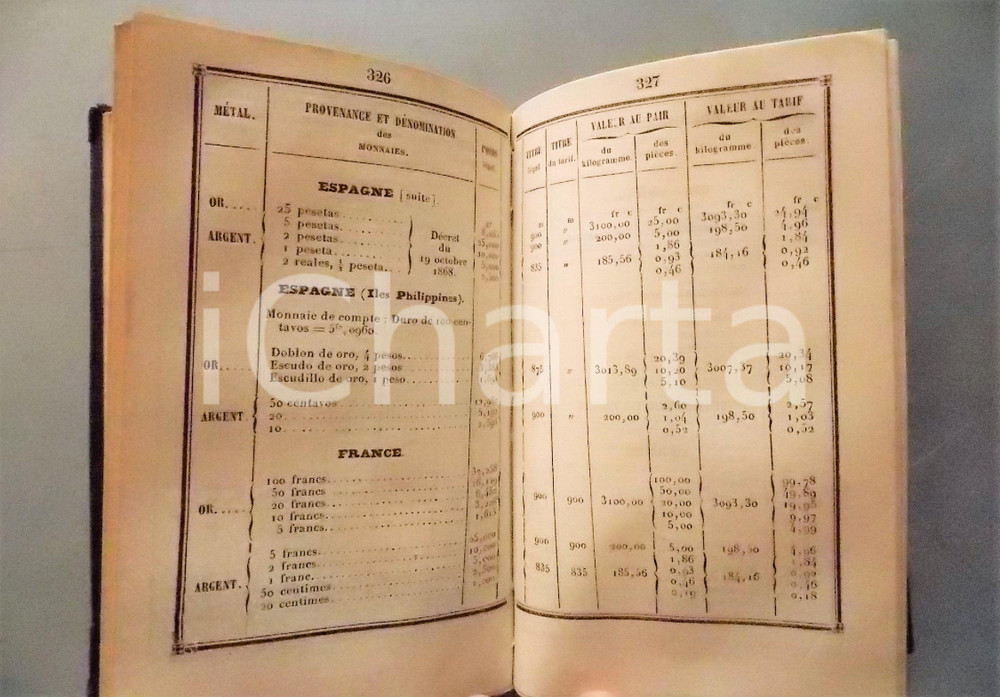 326
MÉTAL.
PROVENANCE ET DÉNOMINATION
des
MONNAIES.
POIDS
légal.
ESPAGNE (suite).
OR.....
25 pesetas
ARGENT.
5 pesetas.
2 pesetas.
1 peseta.
2 reales, ½ peseta.
Décret
du
19 octobre
1868.
25,000
10,000
5,000
ESPAGNE (Iles Philippines).
Monnaie de compte : Duro de 100 cen-
tavos = 5fr,0960.
OR....
Doblon de oro, 4 pesos.
Escudo de oro, 2 pesos
Escudillo de oro, 1 peso
ARGENT.
50 centavos
20
10
FRANCE.
OR....
100 francs
50 francs
20 francs
10 francs
5 francs
32,258
16,129
ARGENT.
5 francs.
2 francs.
1 franc.
50 centimes
20 centimes.
25,000
10,000
5,000
327
TITRE
légal.
TITRE
du tarif.
VALEUR AU PAIR
du
kilogramme.
des
pièces.
VALEUR AU TARIF
du
kilogramme.
des
pièces.
m m fr c fr c fr c fr c
900 " 3100,00 25,00 3093,30 24,94
900 " 200,00 5,00 198,50 4,96
1,86 1,84
835 " 185,56 0,93 184,16 0,92
0,46 0,46
20,39 20,34
875 " 3013,89 10,20 3007,37 10,17
5,10 5,08
2,60 2,57
900 " 200,00 1,04 198,50 1,03
0,52 0,52
100,00 99,78
50,00 49,89
900 900 3100,00 20,00 3093,30 19,95
10,00 9,97
5,00 4,99
900 900 200,00 5,00 198,50 4,96
1,86 1,84
835 835 185,56 0,93 184,16 0,92
0,46 0,46
0,19 0,18
iCharta